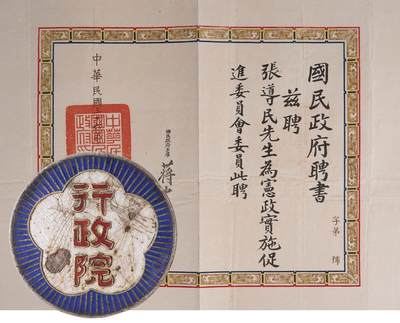 國民政府聘書
茲聘
張導民先生為憲政實施促
進委員會委員此聘
字第 號
蔣
中華民國
行政院